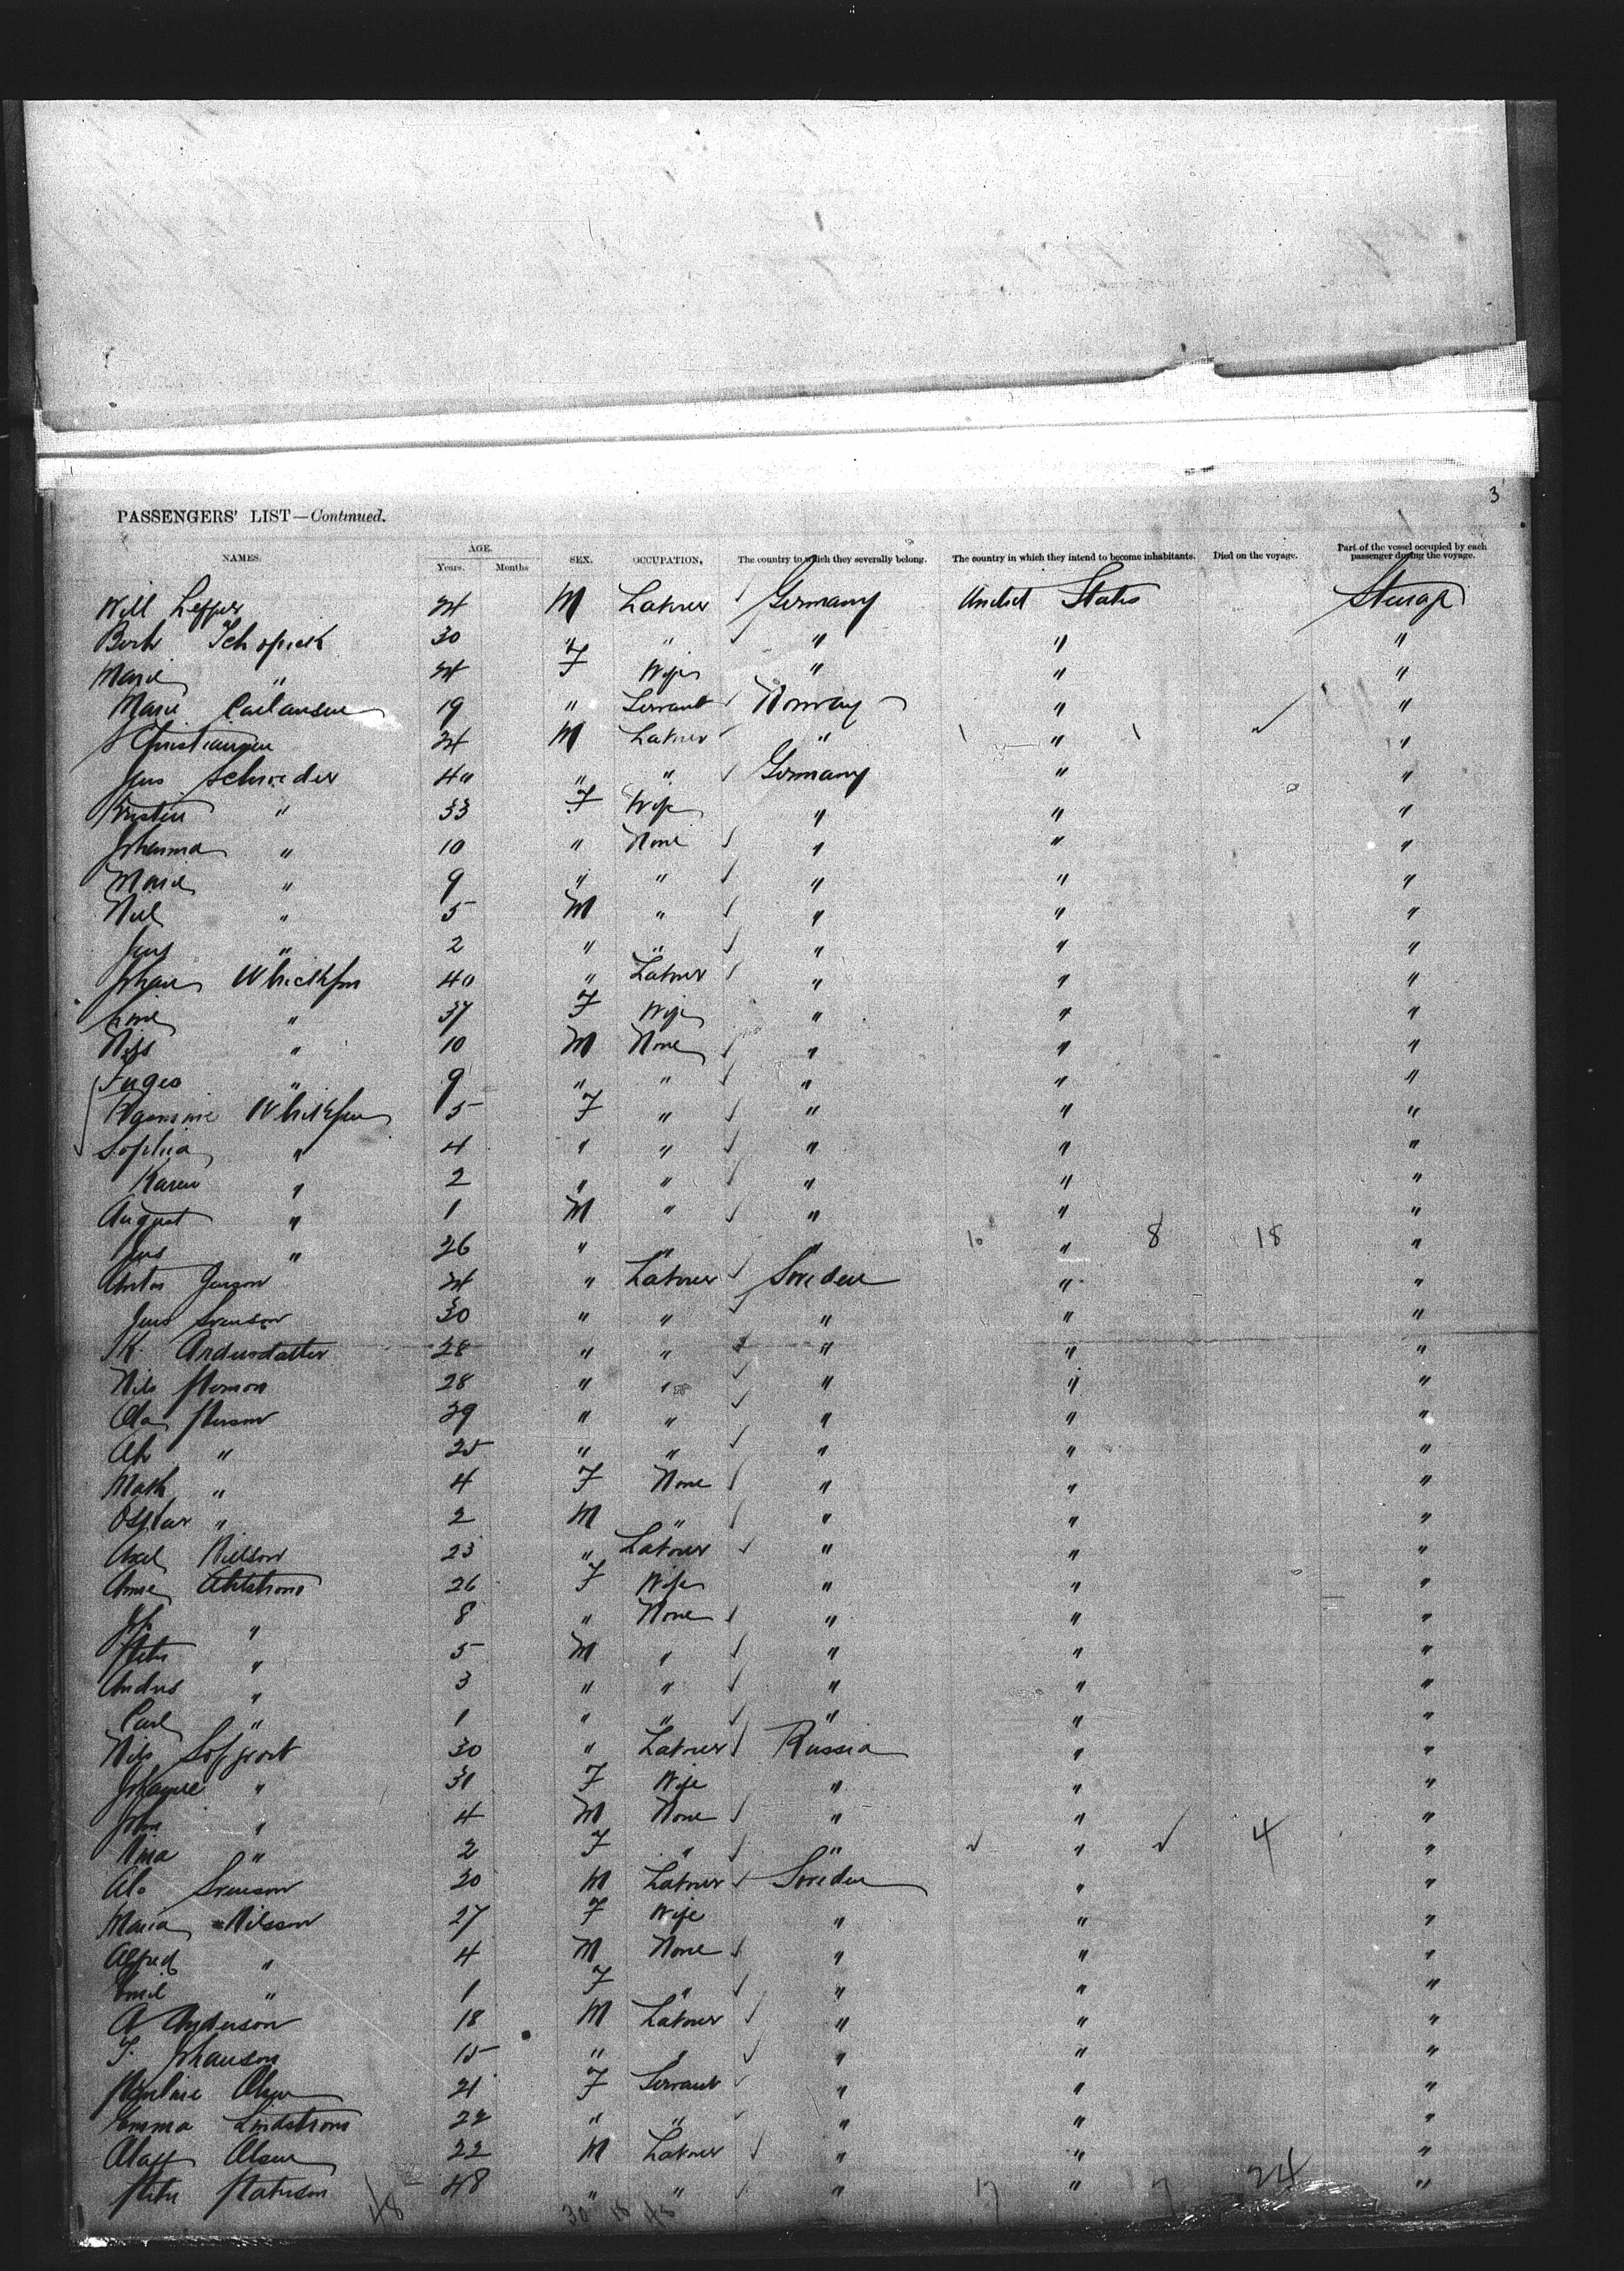 3
PASSENGERS' LIST—Continued.
NAMES. AGE. Years. Months SEX. OCCUPATION, The country to which they severally belong. The country in which they intend to become inhabitants. Died on the voyage. Part of the vessel occupied by each passenger during the voyage.
Will 24 M Laborer Germany United States Steerage
30 " " " " "
Marie " 24 F Wife " " "
Marie Carlansen 19 " Servant Norway " "
Christiansen 24 M Laborer " " "
Jens Schroeder 40 " " Germany " "
Kristin " 33 F Wife " " "
Johanna " 10 " None " " "
Marie " 9 " " " " "
Niel " 5 M " " " "
Jens " 2 " " " " "
Johan 40 " Laborer " " "
Line " 37 F Wife " " "
Nils " 10 M None " " "
" 9 " " " " "
5 F " " " "
Sophia " 4 " " " " "
Karen " 2 " " " " "
August " 1 M " " " "
Jens " 26 " " " 10 " 8 18 "
Anton Jenson 24 " Laborer Sweden " "
Jens Svenson 30 " " " " "
K. Andersdatter 28 " " " " "
Nils 28 " " " " "
Ola Person 29 " " " " "
" 25 " " " " "
Math " 4 F None " " "
Oskar " 2 M " " " "
Axel Nielson 23 " Laborer " " "
Anne Ahlstrom 26 F Wife " " "
" 8 " None " " "
Peter " 5 M " " " "
Andres " 3 " " " " "
Carl " 1 " " " " "
Nils 30 " Laborer Russia " "
Johanne " 31 F Wife " " "
John " 4 M None " " "
Nina " 2 F " " " 4 "
Svenson 20 M Laborer Sweden " "
Maria Nilsson 27 F Wife " " "
Alfred " 4 M None " " "
Emil " 1 F " " " "
A Anderson 18 M Laborer " " "
Johanson 15 " " " " "
Pauline Olsen 21 F Servant " " "
Emma Lindstrom 22 " " " " "
Olaff Olsen 22 M Laborer " " "
Peter 48 " " " 17 " 7 24 "
48 30 18 48